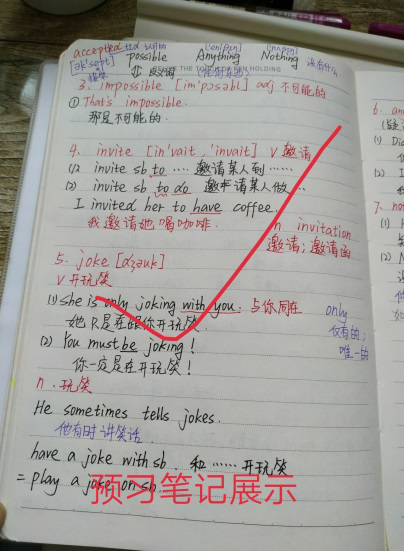 accepted adj 认可的
possible Anything Nothing
[ək'sept]
⇕ 反义词
BEFORE THE TOP OF A PEN HOLDING
3. impossible [im'pɔsəbl] adj 不可能的
① That's impossible.
那是不可能的.
4. invite [in'vait, 'invait] v 邀请
(1) invite sb to … 邀请某人到……
(2) invite sb to do 邀请某人做…
I invited her to have coffee.
我邀请她喝咖啡.
n invitation
邀请; 邀请函
5. joke [dʒəuk]
v 开玩笑
(1) She is only joking with you. 与你同在
only
仅有的;
唯一的
她只是在跟你开玩笑.
(2) You must be joking!
你一定是在开玩笑!
n. 玩笑
He sometimes tells jokes.
他有时讲笑话.
have a joke with sb. 和……开玩笑
= play a joke on sb.
预习笔记展示